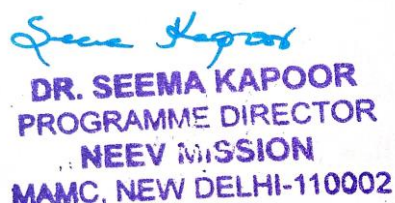 Seema Kapoor
DR. SEEMA KAPOOR
PROGRAMME DIRECTOR
NEEV MISSION
MAMC, NEW DELHI-110002